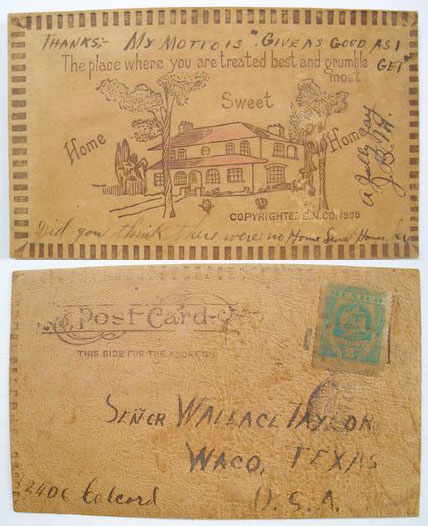 THANKS,- MY MOTTO, IS "GIVE AS GOOD AS I GET"
The place where you are treated best and grumble most
Home Sweet Home
a Jolly
J.B.
COPYRIGHTED S.N.CO. 1906
Did you think there were no Home Sweet Homes
Post Card
THIS SIDE FOR THE ADDRESS
SEÑOR WALLACE TAYLOR
WACO, TEXAS
U.S.A.
Colcord